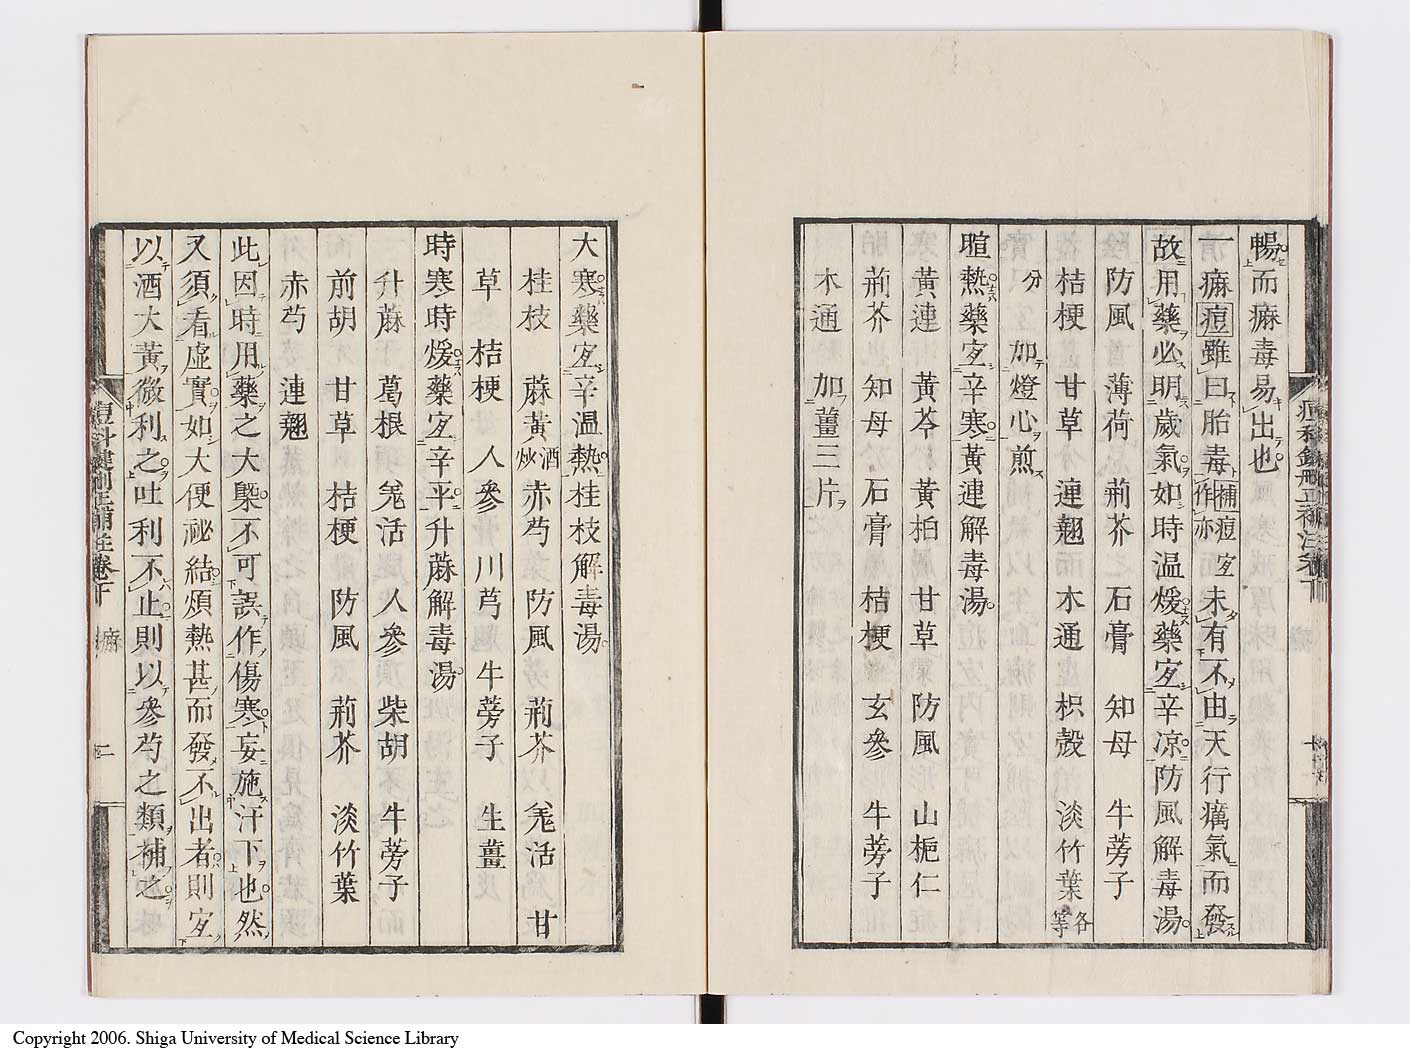 暢而痳毒易出也
一痳痘雖曰胎毒補痘作亦㝎未有不由天行癘氣而發
故用藥必明歲氣如時温煖藥㝎辛凉防風解毒湯
防風 薄荷 荊芥 石膏 知母 牛蒡子
桔梗 甘草 連翹 木通 枳殼 淡竹葉各等
分 加燈心煎
暄熱藥㝎辛寒黃連解毒湯
黃連 黃芩 黃柏 甘草 防風 山梔仁
荊芥 知母 石膏 桔梗 玄參 牛蒡子
木通 加薑三片
大寒藥㝎辛温熱桂枝解毒湯
桂枝 蔴黃酒炒 赤芍 防風 荊芥 羌活 甘
草 桔梗 人參 川芎 牛蒡子 生薑
時寒時煖藥㝎辛平升蔴解毒湯
升蔴 葛根 羌活 人參 柴胡 牛蒡子
前胡 甘草 桔梗 防風 荊芥 淡竹葉
赤芍 連翹
此因時用藥之大槩不可誤作傷寒妄施汗下也然
又須看虛實如大便祕結煩熱甚而發不出者則㝎
以酒大黃微利之吐利不止則以參芍之類補之
痘科鍵刪正補註卷下 痳 二
Copyright 2006. Shiga University of Medical Science Library